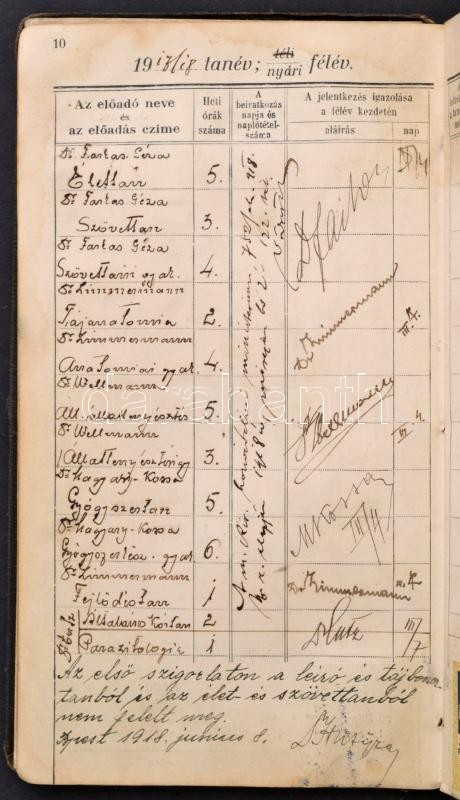 10
19 17/18 tanév; téli nyári félév.
Az előadó neve
és
az előadás czime
Heti
órák
száma
A
beiratkozás
napja és
naplótétel-
száma
A jelentkezés igazolása
a félév kezdetén
aláírás
nap
Dr Farkas Géza
Élettan 5.
Dr Farkas Géza
Szövettan 3.
Dr Farkas Géza
Szövettani gyak. 4.
Dr Zimmermann
Tájanatomia 2.
Dr Zimmermann
Anatomiai gyak. 4.
Dr Wellmann
Ált. állattenyésztés 5.
Dr Wellmann
Állattenyésztési gy. 3.
Dr Magyary-Kossa
Gyógyszertan 5.
Dr Magyary-Kossa
Gyógyszerész. gyak. 6.
Dr Zimmermann
Fejlődéstan 1
Általános Kórtan 2
Parazitologia 1
Dr Zimmermann
Wellmann
MKossa
III/4
Dr Zimmermann
III/7
darabanth
Az első szigorlaton a leíró és tájbonc-
tanból és az élet- és szövettanból
nem felelt meg.
Bpest 1918. junius 8. Dr Hutÿra